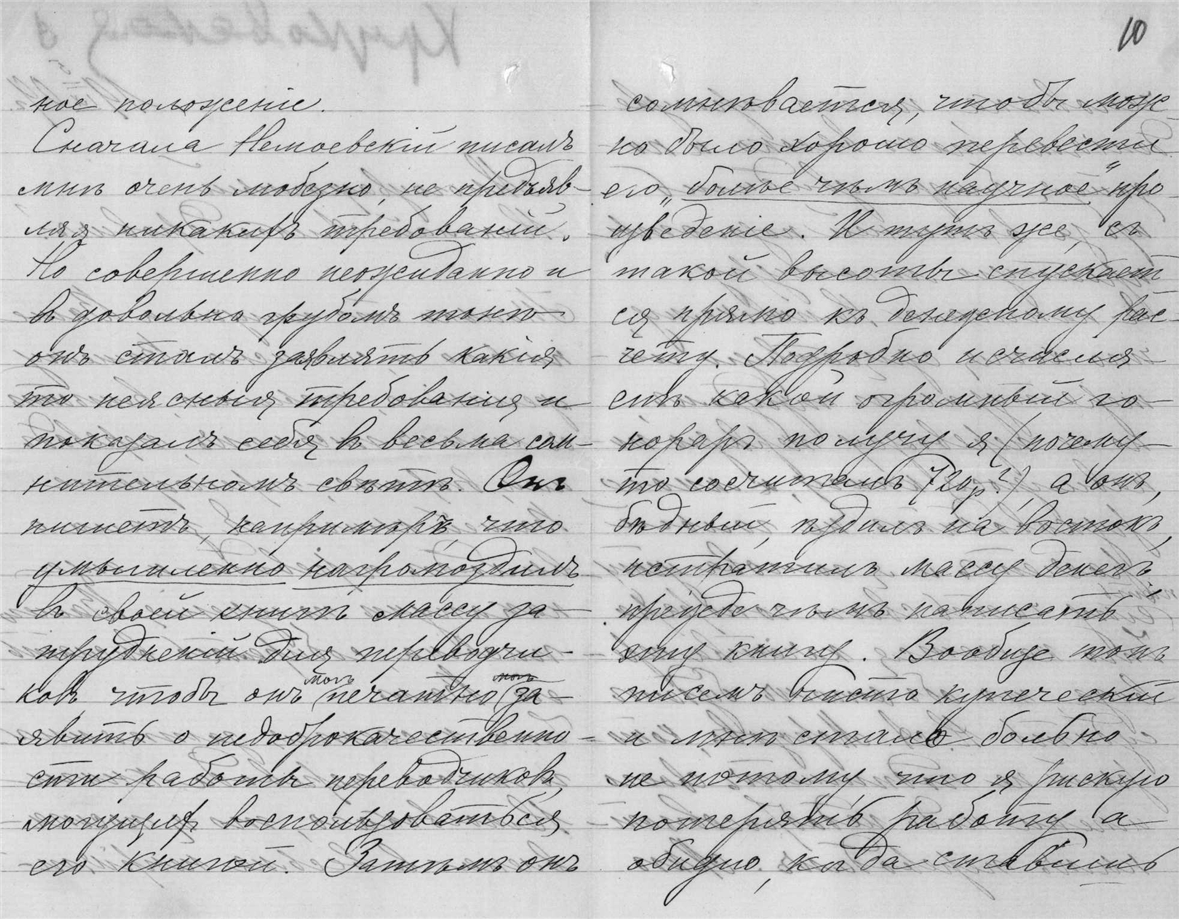 10
ное положеніе.
Сначала Немоевскій писалъ
мнѣ очень любезно, не предъяв-
ляя никакихъ требованій.
Но совершенно неожиданно и
въ довольна грубомъ тонѣ
онъ сталъ заявлять какія
то неясныя требованія и
показалъ себя въ весьма сом-
нительномъ свѣтѣ. Онъ
пишетъ, напримѣръ, что
умышленно нагромоздилъ
въ своей книгѣ массу за-
трудненій для переводчи-
ковъ, чтобы онъ могъ печатно за-
явить о недоброкачественно-
сти работы переводчиковъ,
могущихъ воспользоваться
его книгой. Затѣмъ онъ
сомнѣвается, чтобы мож-
но было хорошо перевести
его „болѣе чѣмъ научное" про-
изведеніе. И тутъ же, съ
такой высоты спускает-
ся прямо къ денежному рас-
чету. Подробно исчисля-
етъ какой огромный го-
нораръ получу я (почему-
то сосчиталъ 720 р?), а онъ,
бѣдный, ѣздилъ на востокъ,
истратилъ массу денегъ,
прежде чѣмъ написать
эту книгу. Вообще тонъ
писемъ чисто купеческій
и мнѣ стало больно
не потому что я рискую
потерять работу а
обидно, когда ставишь